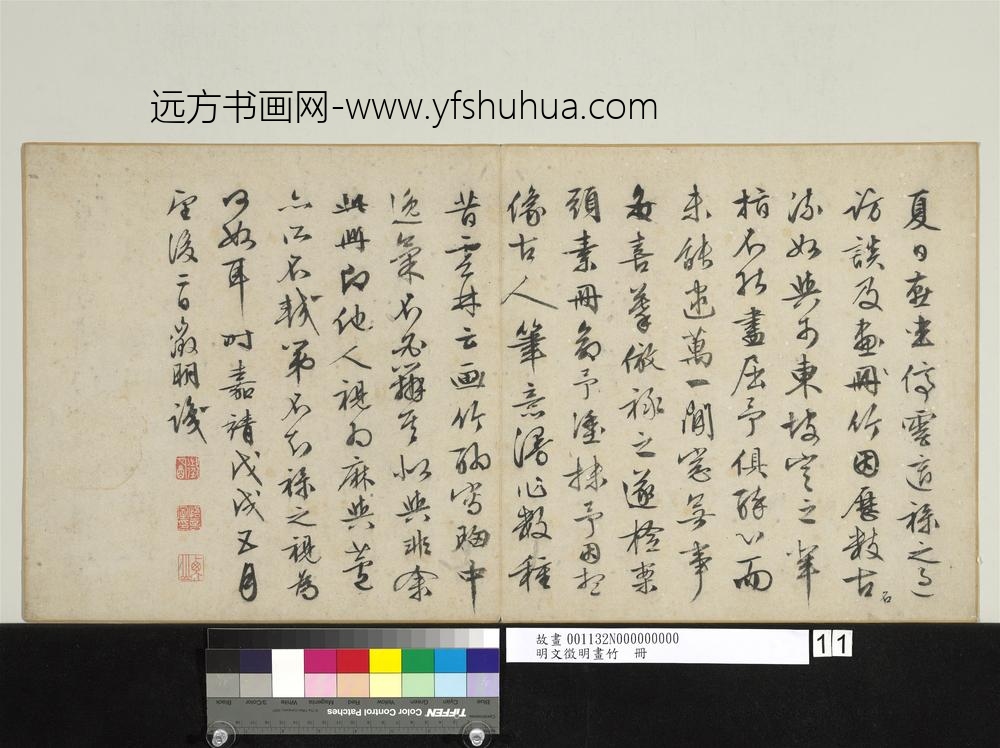 远方书画网-www.yfshuhua.com
夏日燕坐停雲適祿之過
訪談及畫冊竹因歷數古
流如與可東坡定之輩
指不能盡屈予俱醉心而
未能逮萬一閒窗無事
每喜摹倣祿之遂檢案
頭素冊命予塗抹予因想
像古人筆意漫作數種
昔雲林云画竹聊寫胸中
逸氣不必辭其似與非余
此冊即他人視為麻與蘆
亦所不較第不知祿之視為
何如耳時嘉靖戊戌五月
望後二日徵明識
石
故畫 001132N000000000
明文徵明畫竹 冊
11
Blue
Cyan
Green
Yellow
Red
Magenta
White
3/Color
Black
TIFFEN Color Control Patches